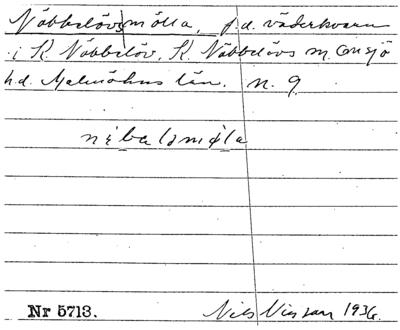 Nöbbelövsmölla, f.d. väderkvarn
i K. Nöbbelöv, K. Nöbbelövs sn, Onsjö
h.d. Malmöhus län. n. 9
nebalsmøla
Nr 5713. Nils Nilsson 1936.